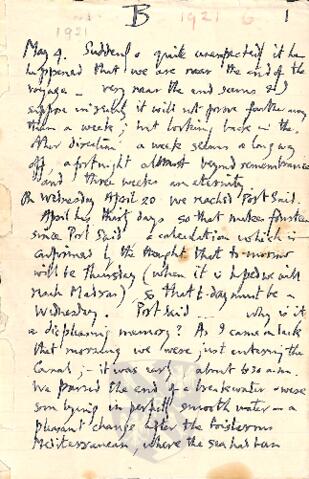 B 1921 6 1
1921
May 4. Suddenly & quite unexpectedly it has
happened that we are near the end of the
voyage – very near the end seems & I
suppose in reality it will not prove further away
than a week; but looking back in the
other direction a week seems a long way
off, a fortnight almost beyond remembrance
and three weeks an eternity.
On Wednesday April 20 we reached Port Said.
April has thirty days so that makes fourteen
since Port Said a calculation which is
confirmed by the thought that to-morrow
will be Thursday (when it is hoped we will
reach Madras), so that to-day must be a
Wednesday. Port Said ... why is it
a displeasing memory? As I came on deck
that morning we were just entering the
Canal; – it was early about 6.30 a.m.
We passed the end of a breakwater & were
soon lying in perfectly smooth water – a
pleasant change after the boisterous
Mediterranean, where the sea has been